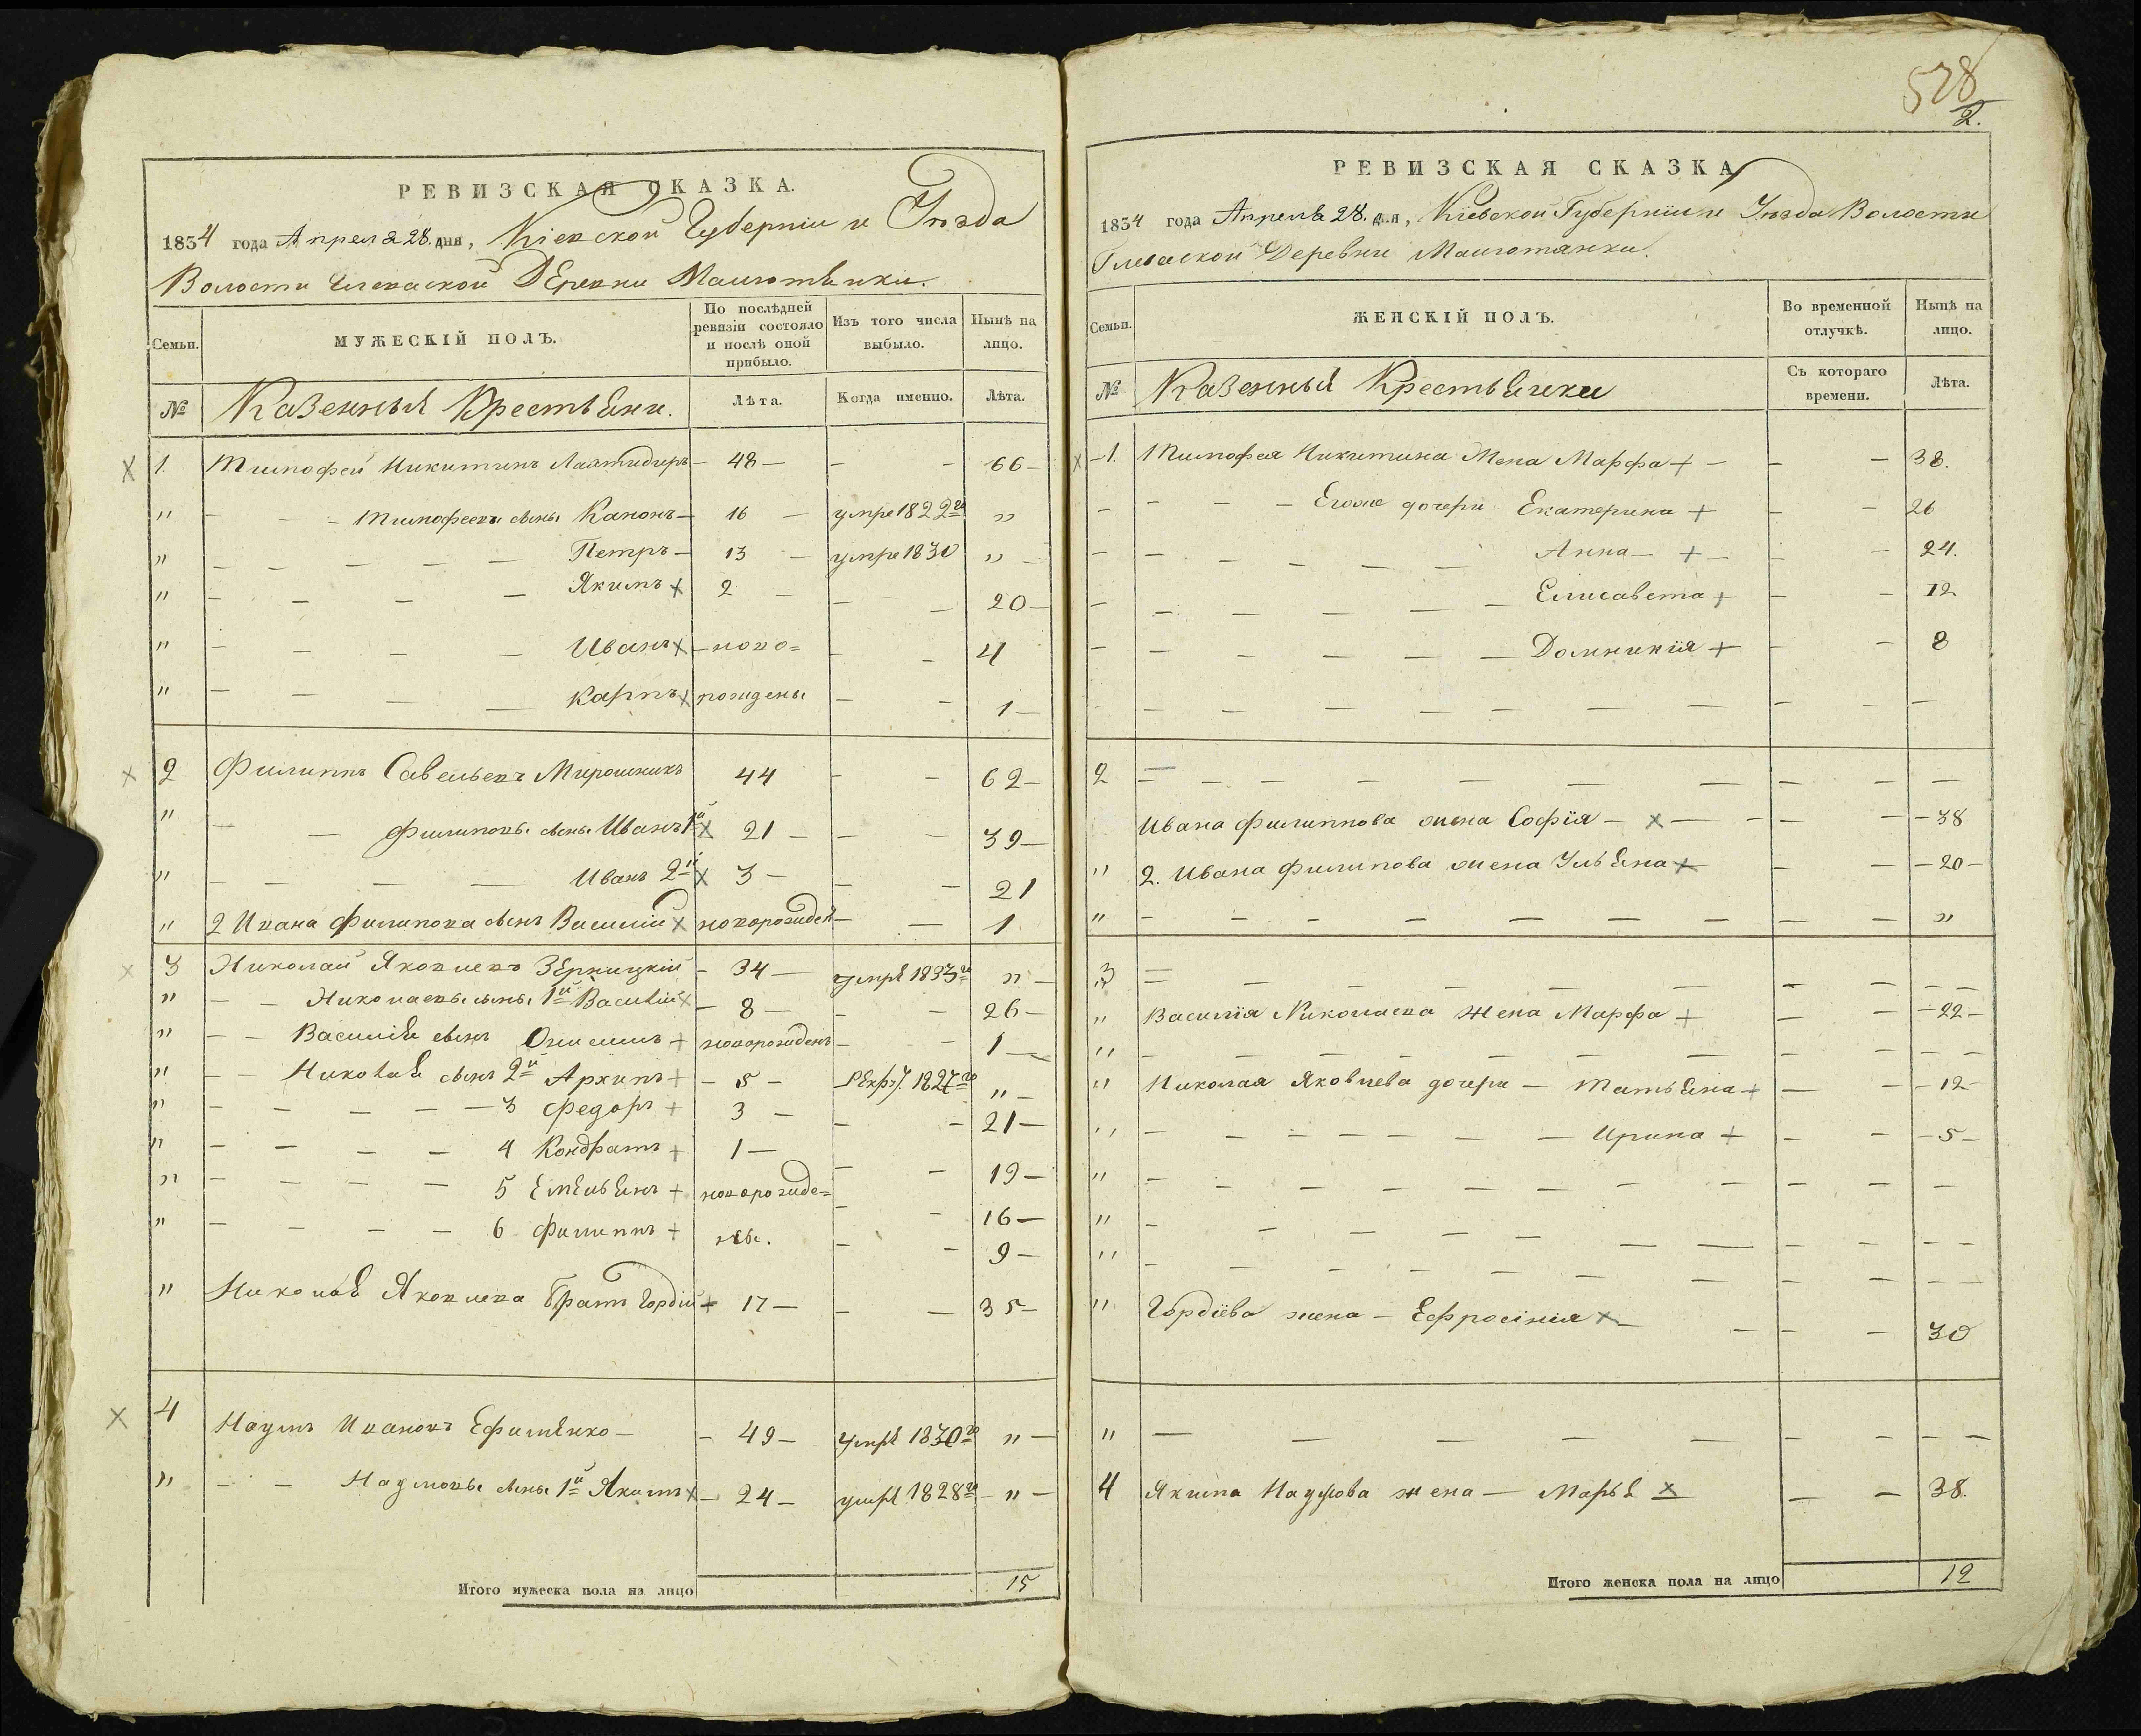 528
2.
РЕВИЗСКАЯ СКАЗКА.
1834 года Апреля 28. дня, Кіевской Губерніи и Уѣзда
Волости Глеваской Деревни Малютянки.
Семьи. МУЖЕСКІЙ ПОЛЪ. По послѣдней ревизіи состояло и послѣ оной прибыло. Изъ того числа выбыло. Нынѣ на лицо.
№ Казенныя Крестьяни. Лѣта. Когда именно. Лѣта.
1. Тимофей Никитинъ — 48 — — — 66 —
" — — — Тимофеевы сыны Канонъ — 16 — умре 1822го "
" — — — — — Петръ — 13 — умре 1830 " —
" — — — — Якимъ + 2 — — — 20 —
" — — — — Иванъ x — ново= — — 4
" — — — — Карпъ x рождены — — 1 —
2 Филиппъ Савельевъ Мирошникъ 44 — — 62 —
" — — Филиповы сыны Иванъ 1й x 21 — — — 39 —
" — — — — Иванъ 2й x 3 — — — 21
" 2 Ивана Филипова сынъ Василий x новорожден — — 1
3 Николай Яковлевъ Зерницкій — 34 — умре 1833го " —
" — — Николаевы сыны 1й Василий x — 8 — — — 26 —
" — — Василія сынъ Онисимъ + новорожденъ — — 1 —
" — — Николая сынъ 2й Архипъ + — 5 — рекру. 1827го " —
" — — — — — 3 Федоръ + 3 — — — 21 —
" — — — — 4 Кондратъ + 1 — — — 19 —
" — — — — 5 Емельянъ + новорожде= — — 16 —
" — — — — 6 Филиппъ + ны. — — 9 —
" Николая Яковлева братъ Гордій + 17 — — — 35 —
4 Наумъ Ивановъ Ефименко — — 49 — умре 1830го " —
" — — Наумовы сыны 1й Якимъ x — 24 — умре 1828го — " —
Итого мужеска пола на лицо 15
РЕВИЗСКАЯ СКАЗКА
1834 года Апреля 28. дня, Кіевской Губерніи и Уезда Волости
Глеваской Деревни Малютянки.
Семьи. ЖЕНСКІЙ ПОЛЪ. Во временной отлучкѣ. Нынѣ на лицо.
№ Казенныя Крестьянки Съ котораго времени. Лѣта.
— 1. Тимофея Никитина Жена Марфа + — — — 38.
— — — — Егоже дочери Екатерина + — — 26
— — — — — — Анна — + — — — 24.
— — — — — — Елисавета + — — 12
— — — — — — Домникія + — — 8
— — — — — — — — — — —
2 — — — — — — — — — — —
Ивана Филиппова жена Софія — x — — — — 38
" 2. Ивана Филипова жена Ульяна + — — — 20 —
" — — — — — — — — — "
3 — — — — — — — — — —
" Василія Николаева жена Марфа + — — — 22 —
" — — — — — — — — — — —
" Николая Яковлева дочери — Татьяна + — — — 12 —
" — — — — — — — Ирина + — — — 5 —
" — — — — — — — — — — —
" — — — — — — — — — — —
" — — — — — — — — — — —
" Гордіева жена — Ефросінія x — — — — 30
" — — — — — — — — —
4 Якима Наумова жена — Марья x — — 38.
Итого женска пола на лицо 12